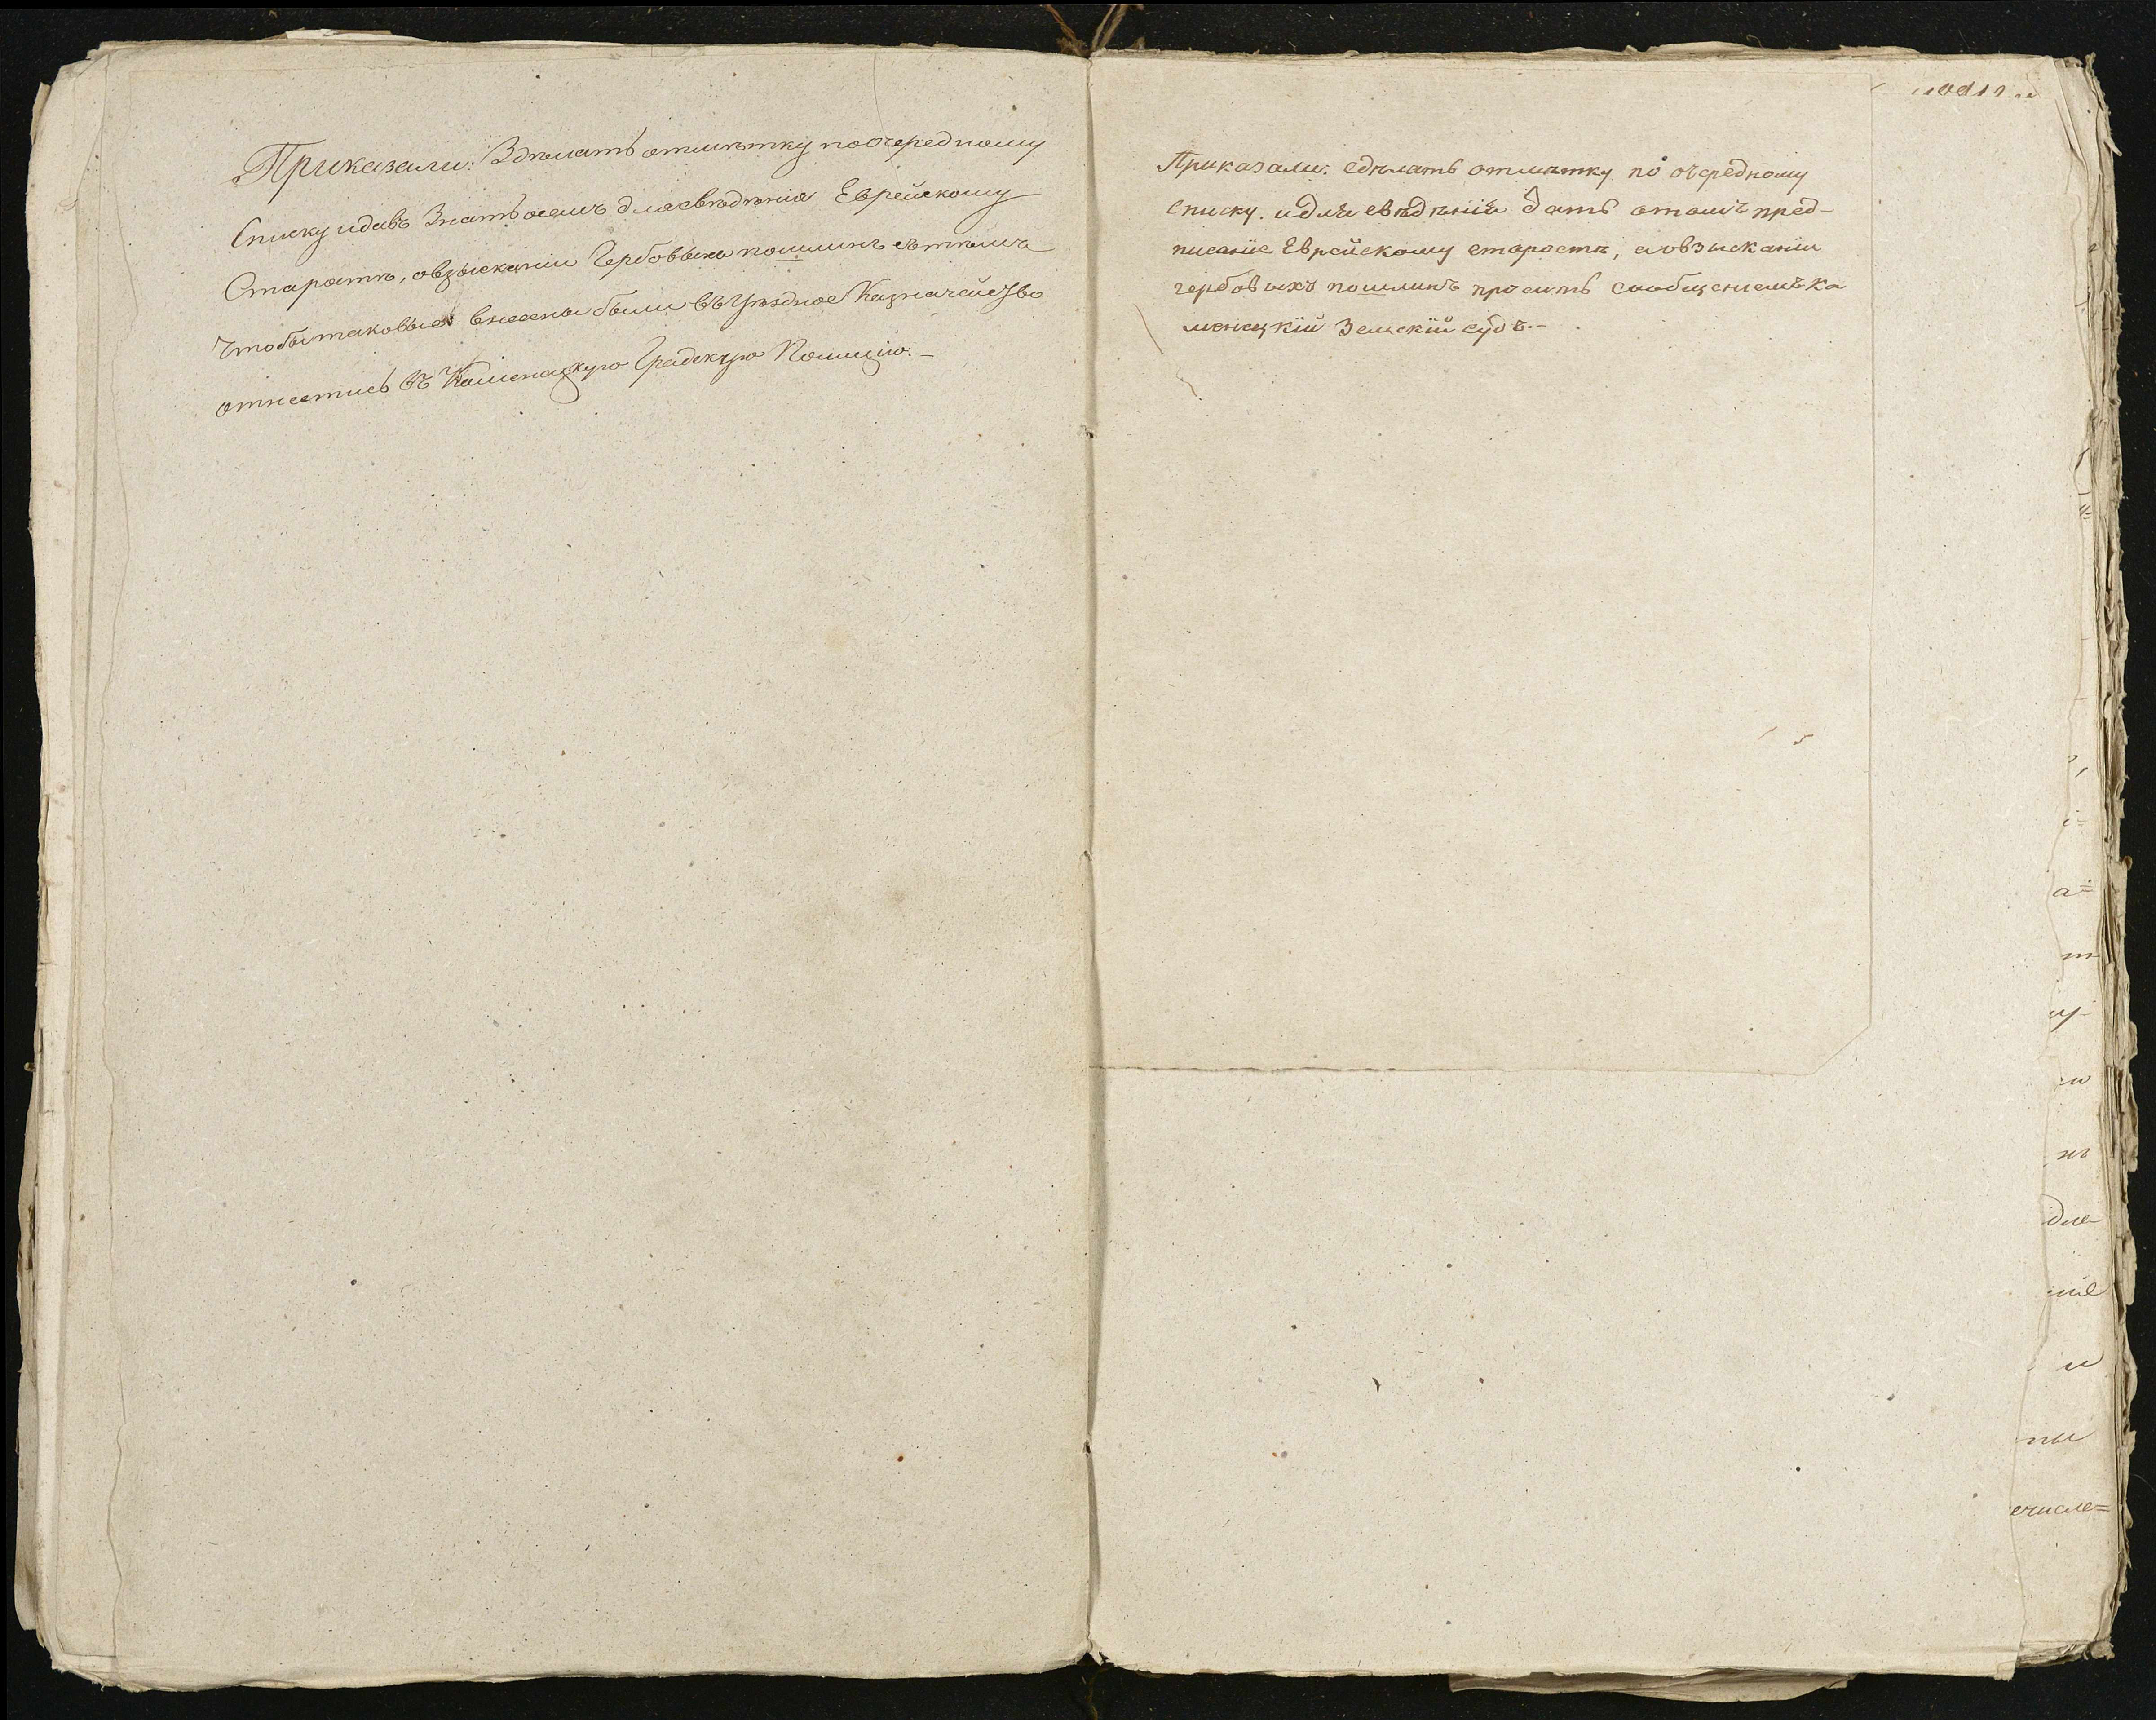 Приказали: Здѣлать отмѣтку поочередному
Списку идавъ Знать осемъ длясвѣдѣнія Еврейскому
Старостѣ, овзысканіи Гербовыхъ пошлинъ сътѣмъ
Чтобытаковые внесены были въУѣздное Казначейство
отнестись въ Каменецкую Градскую Полицію.–
Приказали: сдѣлать отмѣтку по очередному
списку. идля свѣдѣнія дать отомъ пред-
писаніе Еврейскому старостѣ, аовзысканіи
гербовыхъ пошлинъ просить сообщеніемъ Ка
менецкій Земскій судъ.–
а=
т
ну
ю
нъ
дле
ніе
и
ны
ечисле=